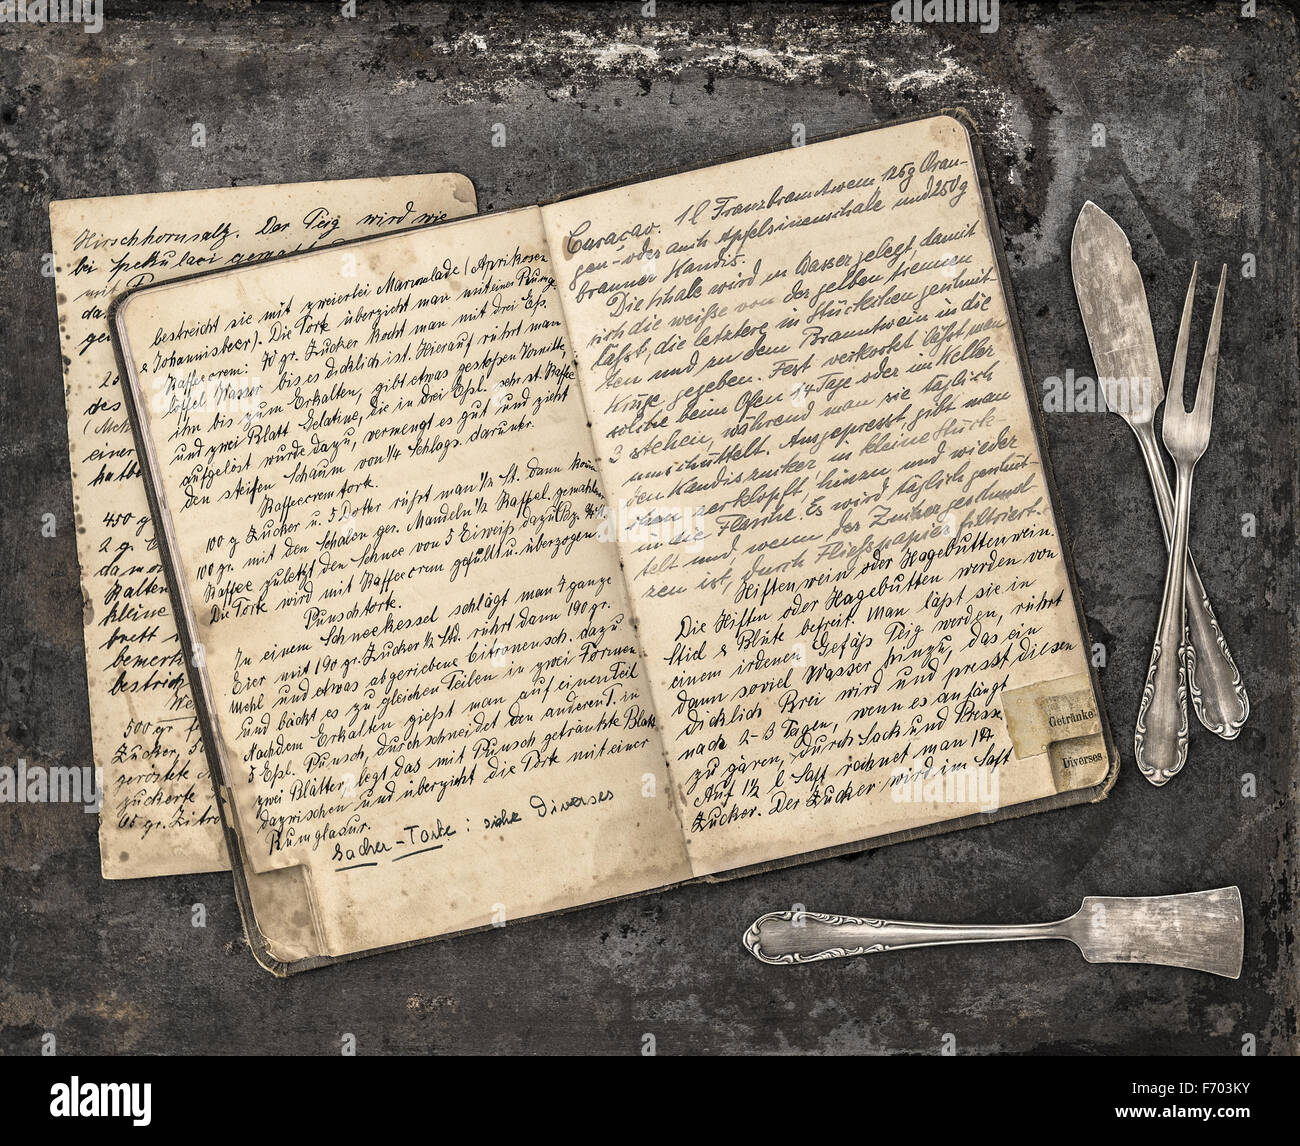 Hirschhornsalz. Der Teig wird wie
bei Spekulaci gemacht
mit
da
gen
25
des
(Meh
einer
kaltb
450 g
2 gr.
dann
kalten
kleine
brett
bemerk
bestrich
We
500 gr.
Zucker, 50
geröstete M
zuckerte
65 gr. Zitro
bestreicht sie mit zweierlei Marmelade (Aprikosen
& Johannisbeer). Die Tork überzieht man mit eines Punsch
Kaffeecrem: 70 gr. Zucker kocht man mit drei Eßl.
Löffel Wasser bis es dicklich ist. Hierauf rührt man
ihn bis zum Erkalten, gibt etwas gestoßen Vanille,
und zwei Blatt Gelatine, die in drei Eßl. sehr st. Kaffee
aufgelöst wurde dazu, vermengt es gut und zieht
den steifen Schaum von 1/4 Schlags. darunter.
Kaffeecremtork.
100 g Zucker u. 5 Dotter rührt man 1/2 St. dann kom
100 gr. mit den Schalen ger. Mandeln 1/2 Kaffel. gemahlen
Kaffee zuletzt den Schnee von 5 Eiweiß dazu
Die Tork wird mit Kaffeecrem gefüllt u. überzogen
Punschtork.
In einem Schneekessel schlägt man 7 ganze
Eier mit 190 gr. Zucker 1/2 Std. rührt dann 190 gr.
Mehl und etwas abgeriebene Citronensch. dazu
und bäckt es zu gleichen Teilen in zwei Formen
Nachdem Erkalten gießt man auf einen Teil
5 Eßl. Punsch, durchschneidet den anderen T. in
zwei Blätter, legt das mit Punsch getränkte Blatt
dazwischen und überzieht die Tork mit einer
Rumglasur.
Sacher-Torte: siehe Diverses
Curaçao. 1 l Franzbranntwein 125 g Oran-
gen- oder auch Apfelsinenschale und 250 g
braunen Kandis.
Die Schale wird in Wasser gelegt, damit
sich die weiße von der gelben trennen
läßt, die letztere in Stückchen geschnit-
ten und zu dem Branntwein in die
Kruse gegeben. Fest verkorkt läßt man
solche beim Ofen 14 Tage oder im Keller
3 stehen, während man sie täglich
umschüttelt. Ausgepresst, gibt man
den Kandiszucker in kleine Stück-
chen zerklopft, hinzu und wieder
in die Flasche. Es wird täglich geschüt-
telt und, wenn der Zucker geschmol
zen ist, durch Fließpapier filtriert.
Hiftenwein oder Hagebuttenwein.
Die Hiften oder Hagebutten werden von
Stiel & Blüte befreit. Man läßt sie in
einem irdenen Gefäß Teig werden, rührt
dann soviel Wasser hinzu, das ein
dicklich Brei wird und presst diesen
nach 2-3 Tagen, wenn es anfängt
zu gären, durch Sack und Presse
Auf 1 1/2 l Saft rechnet man 1 &
Zucker. Der Zucker wird im Saft
Getränke.
Diverses
alamy
Image ID: F703KY
www.alamy.com